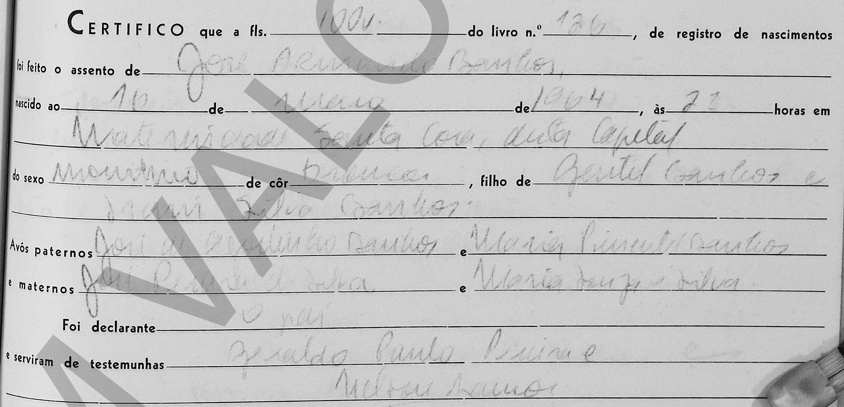 CERTIFICO que a fls. 100v. do livro n.º 126, de registro de nascimentos
foi feito o assento de José Armando Banhos,
nascido ao 10 de maio de 1964, às 22 horas em
Maternidade Santa Casa, desta Capital
do sexo masculino de côr branca, filho de Gentil Banhos e
Silva Banhos.
Avós paternos José de Banhos e Maria Pimentel Banhos
e maternos José Pereira da Silva e Maria Souza e Silva.
Foi declarante O pai
e serviram de testemunhas Geraldo Paulo Pereira e
Nelson Ramos
AVALO